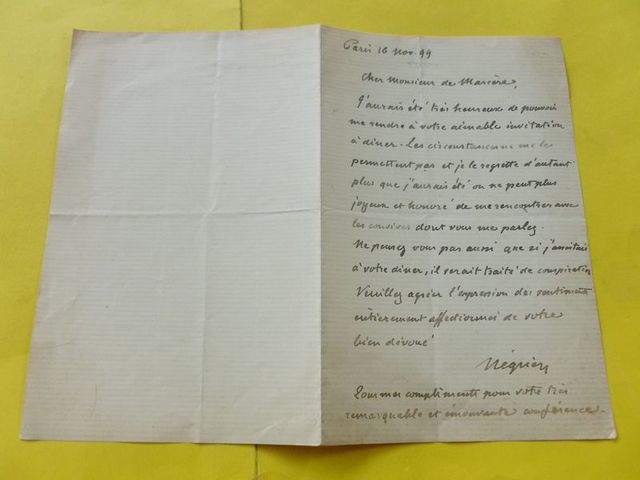 Paris 16 Nov. 99
Cher Monsieur de Marcère,
J'aurais été très heureux de pouvoir
me rendre à votre aimable invitation
à diner. Les circonstances ne me le
permettent pas et je le regrette d'autant
plus que j'aurais été on ne peut plus
joyeux et honoré de me rencontrer avec
les convives dont vous me parlez.
Ne pensez vous pas aussi que si j'assistais
à votre diner, il serait traité de conspiration
Veuillez agréer l'expression des sentiments
entièrement affectionnés de votre
bien dévoué
Négrier
Tous mes compliments pour votre très
remarquable et émouvante conférence.